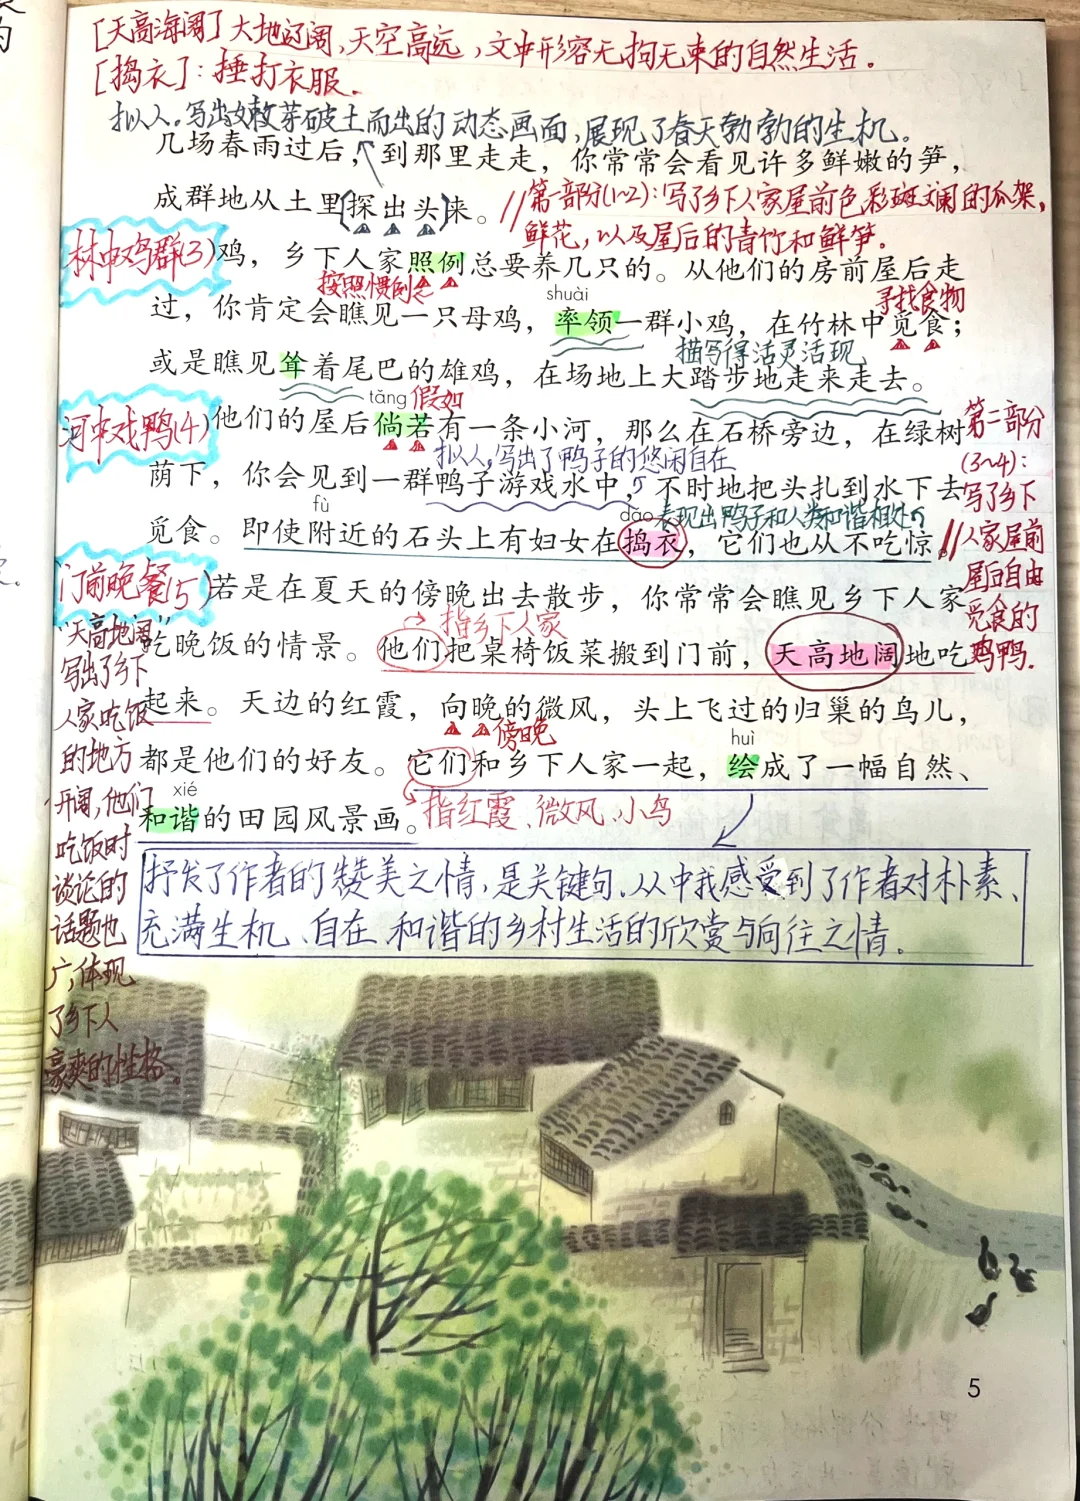 [天高海阔] 大地辽阔,天空高远,文中形容无拘无束的自然生活。
[捣衣]:捶打衣服.
拟人。写出嫩芽破土而出的动态画面,展现了春天勃勃的生机。
几场春雨过后，到那里走走，你常常会看见许多鲜嫩的笋，
成群地从土里探出头来。
//第一部分(1~2):写了乡下人家屋前色彩斑斓的瓜架,
鲜花,以及屋后的青竹和鲜笋。
林中鸡群(3)
鸡，乡下人家照例总要养几只的。从他们的房前屋后走
按照惯例
shuài
寻找食物
过，你肯定会瞧见一只母鸡，率领一群小鸡，在竹林中觅食；
描写得活灵活现
或是瞧见耸着尾巴的雄鸡，在场地上大踏步地走来走去。
tǎng 假如
河中戏鸭(4)
他们的屋后倘若有一条小河，那么在石桥旁边，在绿树
拟人,写出了鸭子的悠闲自在
荫下，你会见到一群鸭子游戏水中，不时地把头扎到水下去
fù
dǎo
表现出鸭子和人类和谐相处
觅食。即使附近的石头上有妇女在捣衣，它们也从不吃惊。//
第二部分
(3~4):
写了乡下
人家屋前
屋后自由
觅食的
鸡鸭.
门前晚餐(5)
若是在夏天的傍晚出去散步，你常常会瞧见乡下人家
指乡下人家
吃晚饭的情景。他们把桌椅饭菜搬到门前，天高地阔地吃
起来。天边的红霞，向晚的微风，头上飞过的归巢的鸟儿，
傍晚
huì
都是他们的好友。它们和乡下人家一起，绘成了一幅自然、
xié
和谐的田园风景画。
指红霞、微风、小鸟
"天高地阔"
写出了乡下
人家吃饭
的地方
开阔,他们
吃饭时
谈论的
话题也
广,体现
了乡下人
豪爽的性格。
抒发了作者的赞美之情,是关键句.从中我感受到了作者对朴素、
充满生机、自在、和谐的乡村生活的欣赏与向往之情。
5